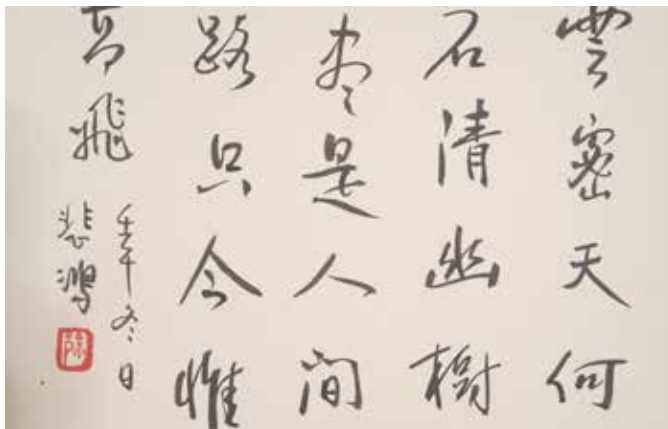 雲密天何
石清幽樹
盡是人间
路只今惟
飛
壬午冬日
悲鴻